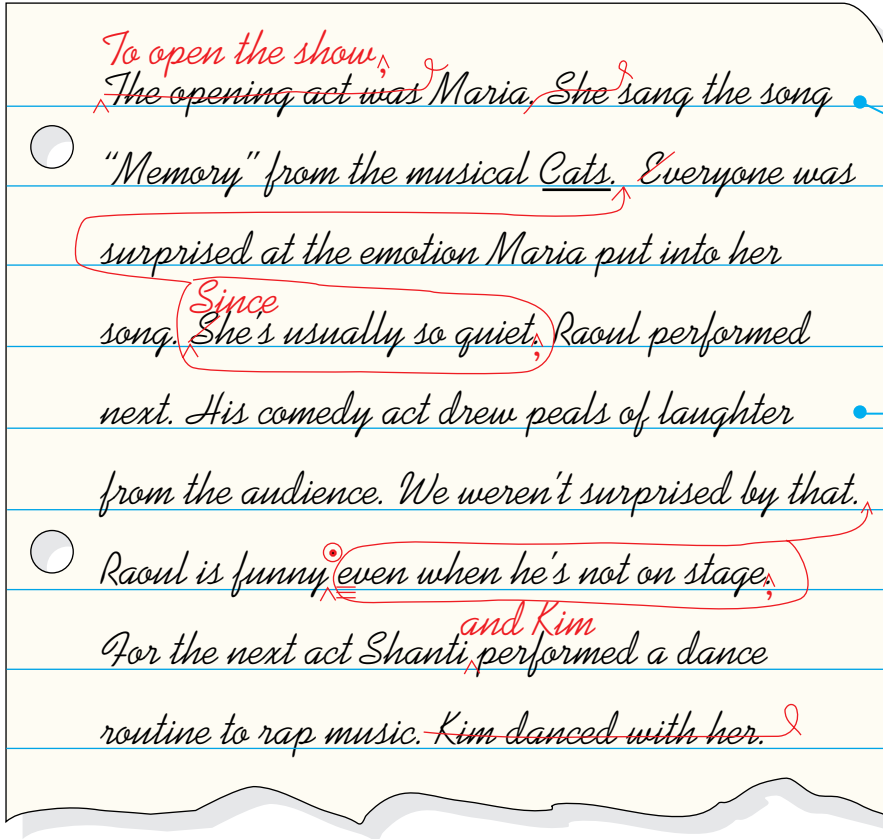 To open the show,
The opening act was Maria. She sang the song
"Memory" from the musical Cats. Everyone was
surprised at the emotion Maria put into her
Since
song. She's usually so quiet. Raoul performed
next. His comedy act drew peals of laughter
from the audience. We weren't surprised by that.
Raoul is funny even when he's not on stage.
and Kim
For the next act Shanti performed a dance
routine to rap music. Kim danced with her.